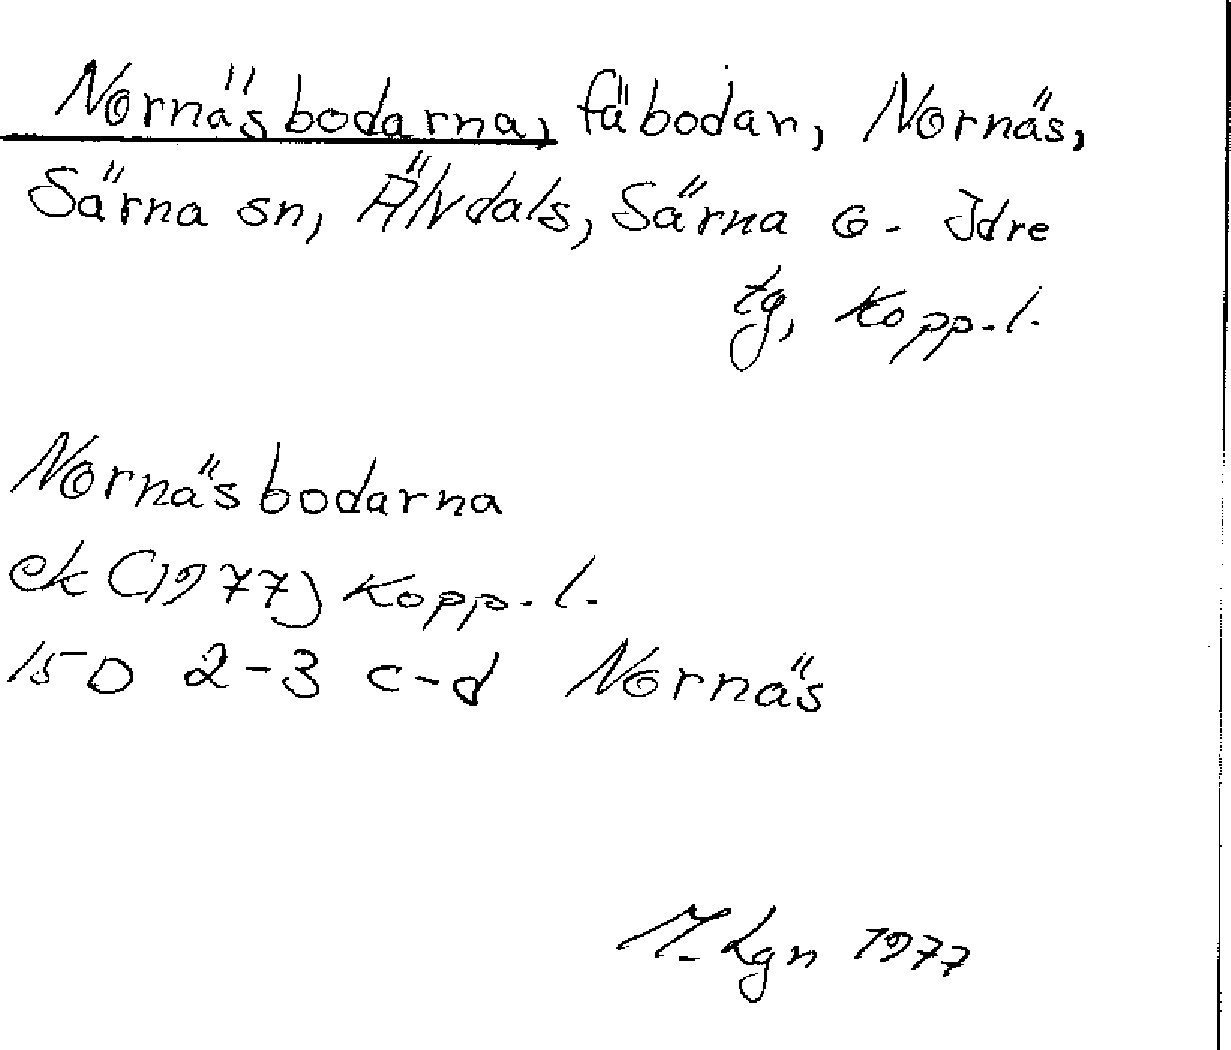 Nornäsbodarna, fäbodar, Nornäs,
Särna sn, Älvdals, Särna o. Idre
tg, Kopp. l.
Nornäsbodarna
ek (1977) Kopp. l.
15 D 2-3 c-d Nornäs
M. Lgn 1977